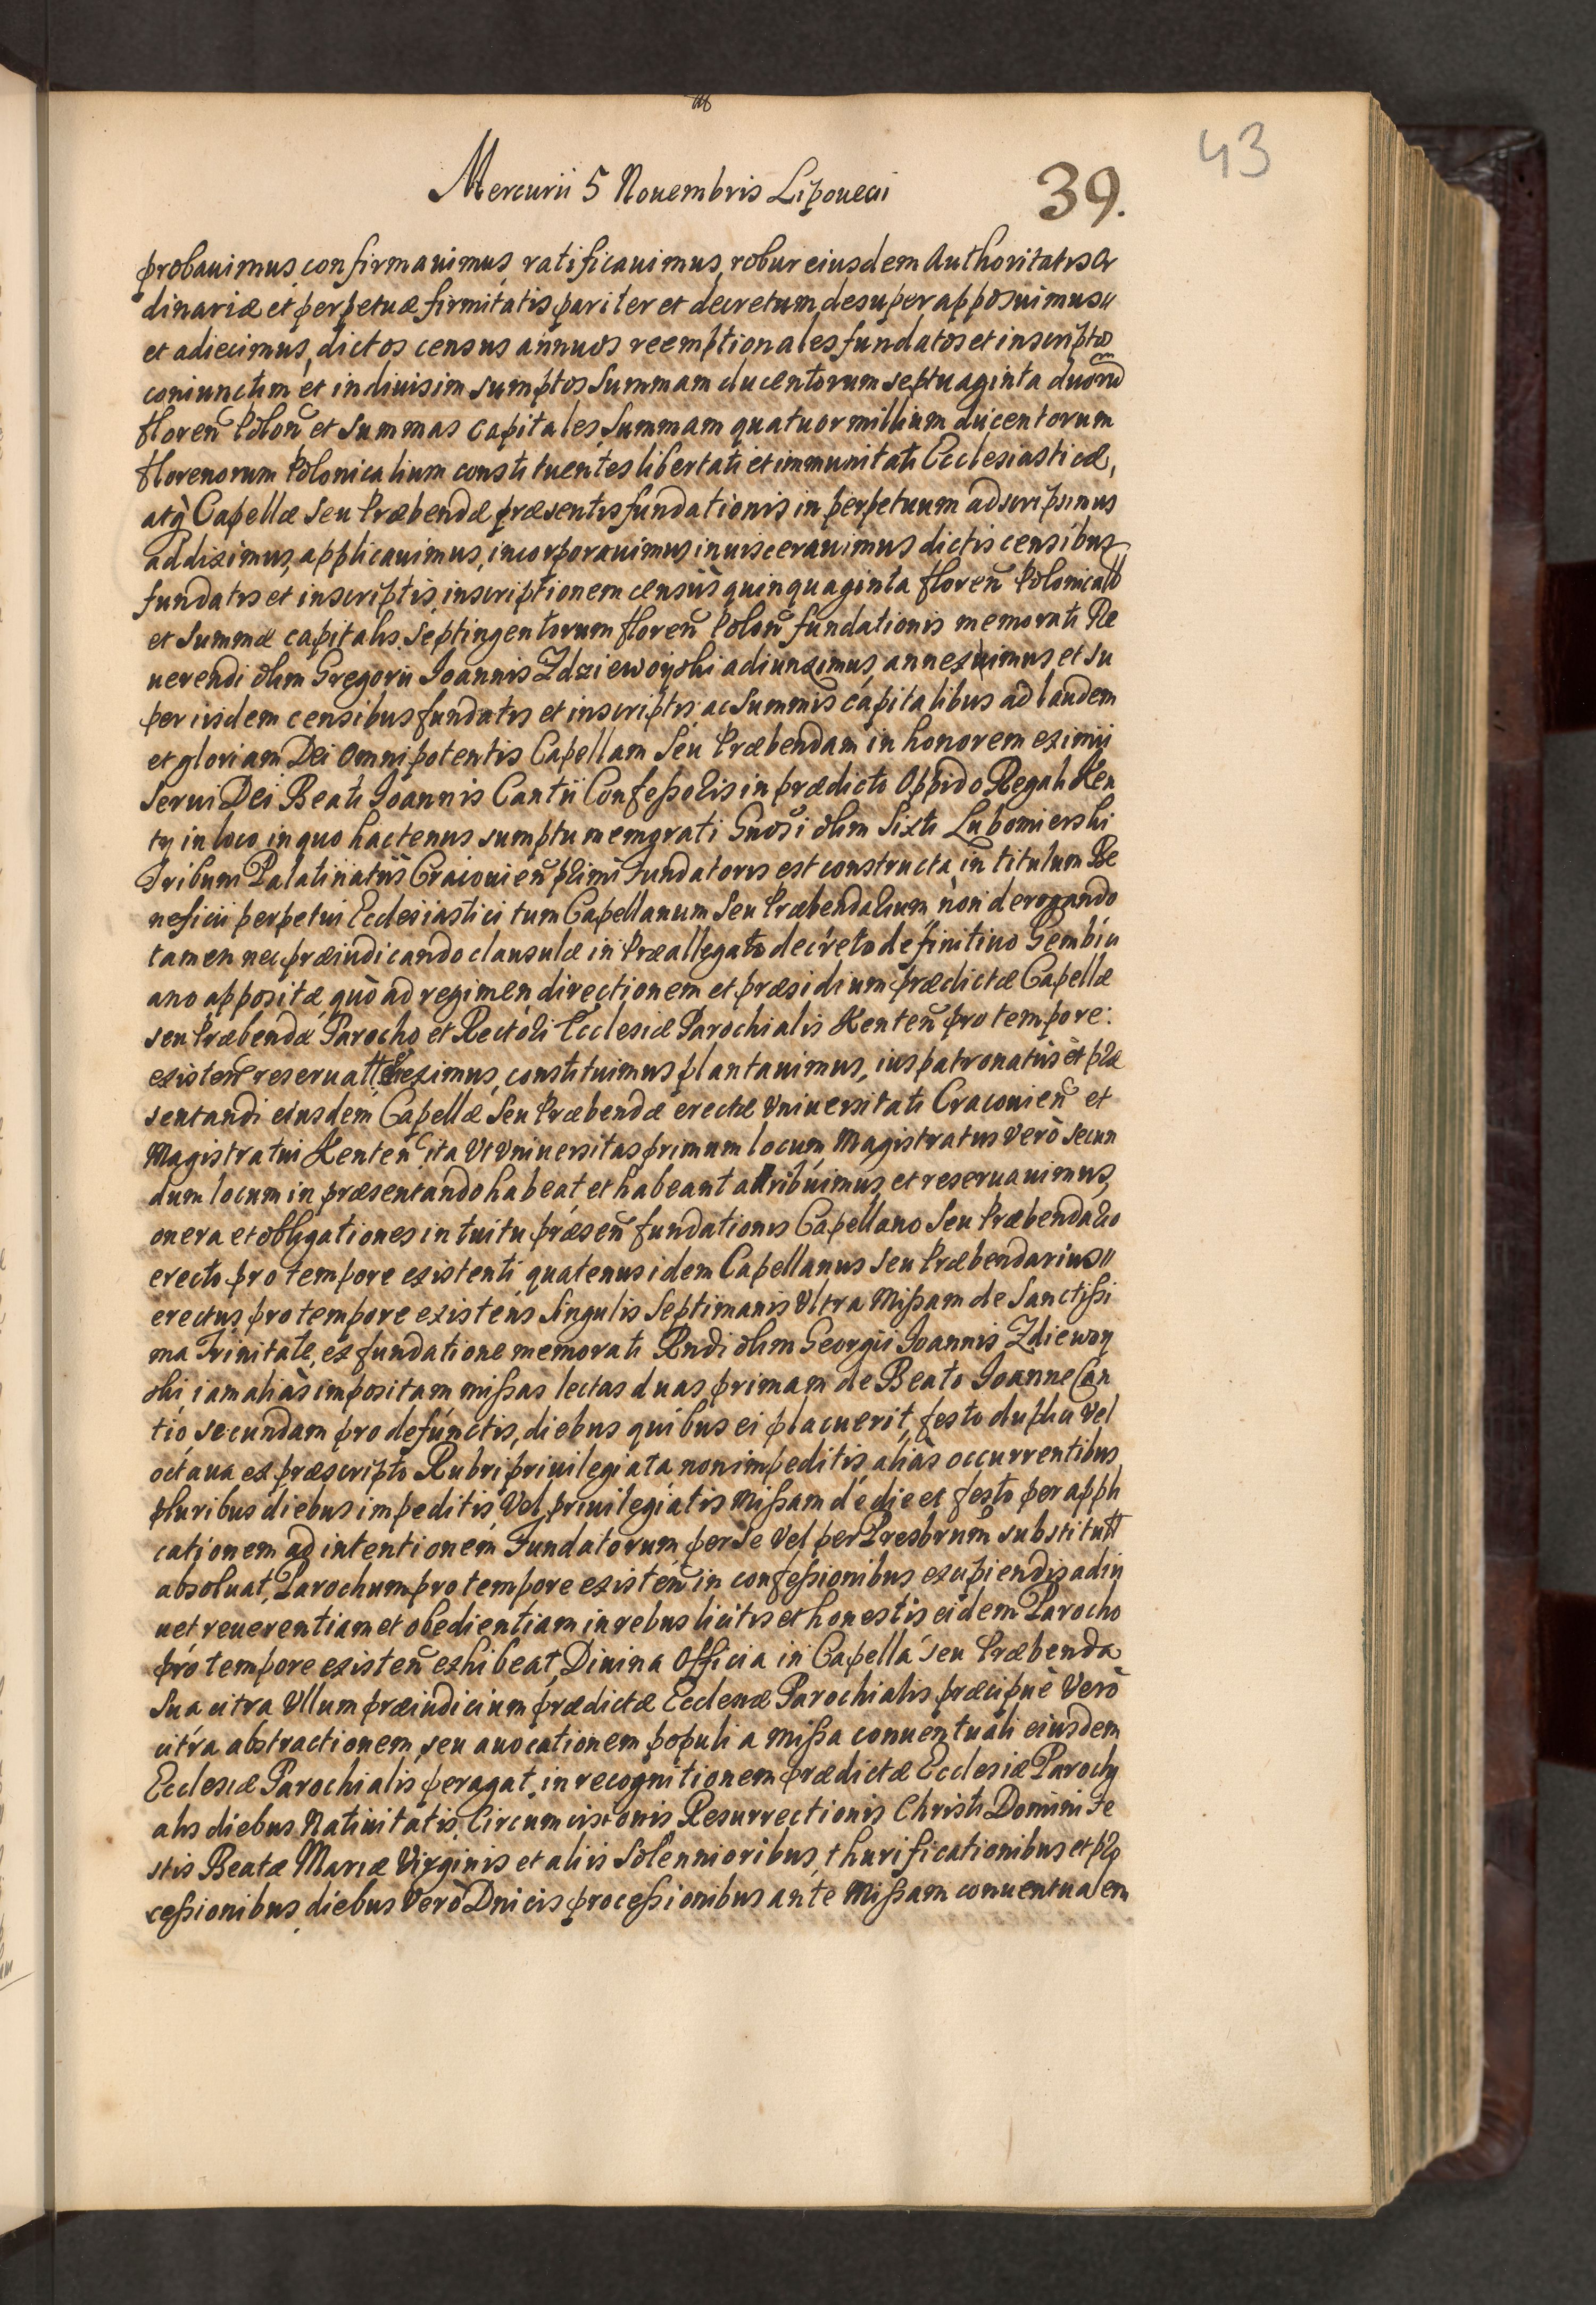 43
Mercurii 5 Nouembris Lipoueci 39.
probauimus, confirmauimus, ratificauimus, robur eiusdem Authoritatis Or
dinariæ et perpetuæ firmitatis pariter et decretum desuper apposuimus
et adiecimus, dictos census annuos reemptionales fundatos et inscriptos
coniunctim et indiuisim sumptos Summam ducentorum septuaginta duorũ
floreñ Poloñ et Summas Capitales, Summam quatuor millium ducentorum
florenorum Polonicalium constituentes libertati et immunitati Ecclesiasticæ,
atq̀ Capellæ Seu Præbendæ præsentis fundationis in perpetuum adscripsimus
addiximus, applicauimus, incorporauimus inuiscerauimus dictis censibus
fundatis et inscriptis, inscriptionem censûs quinquaginta floreñ Polonicali
et Summæ capitalis Septingentorum floreñ Poloñ fundationis memorati Re
uerendi olim Gregorii Joannis Zdziewoyski adiunximus, anneximus et su
per iisdem censibus fundatis et inscriptis ac Summis capitalibus ad laudem
et gloriam Dei Omnipotentis Capellam Seu Præbendam in honorem eximii
Serui Dei Beati Joannis Cantii Confeßoris in prædicto Oppido Regali Ken
ty in loco, in quo hactenus sumptu memorati Gnosi olim Sixti Lubomierski
Tribuni Palatinatûs Cracouieñ primi Fundatoris est constructa, in titulum Be
neficii perpetui Ecclesiastici tum Capellanum Seu Præbendarium, non derogando
tamen nec præiudicando clausulæ in Præallegato decreto definitiuo Gembici
ano appositæ, quò ad regimen, directionem et præsidium prædictæ Capellæ
seu Præbendæ Parocho et Rectori Ecclesiæ Parochialis Kenteñ pro tempore:
existeñ reseruat Ereximus, constituimus plantauimus, ius patronatûs et præ
sentandi eiusdem Capellæ Seu Præbendæ erectæ Vniuersitati Cracouieñ et
Magistratui Kenteñ ita Vt Vniuersitas primum locum, Magistratus Verò secun
dum locum in præsentando habeat et habeant attribuimus et reseruauimus,
onera et obligationes intuitu præseñ fundationis Capellano Seu Præbendario
erecto pro tempore existenti quatenus idem Capellanus Seu Præbendarius
erectus pro tempore existens Singulis Septimanis Vltra Mißam de Sanctißi
ma Trinitate, ex fundatione memorati Rndi olim Georgii Joannis Zdiewoy
ski, iam aliàs impositam mißas lectas duas primam de Beato Joanne Can
tio, secundam pro defunctis, diebus quibus ei placuerit, festo duplici Vel
octaua ex præscripto Rubri priuilegiata non impeditis, aliàs occurrentibus
pluribus diebus impeditis Vel priuilegiatis Mißam de die et festo per appli
cationem ad intentionem Fundatorum per Se Vel per Presbrum substitutt
absoluat, Parochum pro tempore existeñ in confeßionibus excipiendis adiu
uet reuerentiam et obedientiam in rebus licitis et honestis eidem Parocho
pro tempore existeñ exhibeat, Diuina Officia in Capella seu Præbenda
Sua citra Vllum præiudicium prædictæ Ecclesiæ Parochialis præcipuè Verò
citra abstractionem, seu auocationem populi a Mißa conuentuali eiusdem
Ecclesiæ Parochialis peragat, in recognitionem prædictæ Ecclesiæ Parochi
alis diebus Natiuitatis, Circumcisionis Resurrectionis Christi Domini Fe
stis Beatæ Mariæ Virginis et aliis Solennioribus, thurificationibus et pro
ceßionibus, diebus Verò Dnicis proceßionibus ante Mißam conuentualem